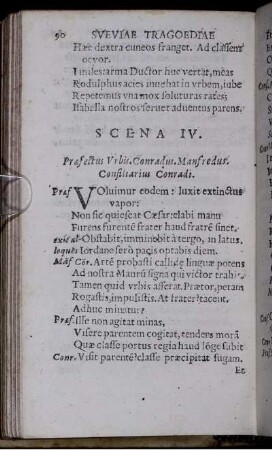 90 SVEVIAE TRAGOEDIAE
Hæc dextra cuneos franget. Ad classem
ocyor.
I miles arma Ductor huc vertat, meas
Rodulphus acies inuehat in vrbem, iube
Repetemus vna mox soluturas rates;
Isabella nostros seruet aduentus parens.
SCENA IV.
Præfectus Vrbis. Conradus. Manfredus.
Consiliarius Conradi.
Præf VOluimur eodem: luxit extinctus
vapor:
Non sic quiescat Cæsar: elabi manu
Furens furentē frater haud fratrē sinet.
Obstabit, imminobit à tergo, in latus.
Iordane serò pacis optabis diem.
Mãf Cõr. Artē probasti callidę linguæ potens
Ad nostra Mauri signa qui victor trahis
Tamen quid vrbis asserat. Prætor, peram
Rogastis, impulistis. At frater tacent.
Adhuc minatur?
Præf. Ille non agitat minas,
Visere parentem cogitat, tendens morã
Quæ classe portus regia haud lõge subit
Conr. Visit parentē? classe præcipitat fugam.
Et